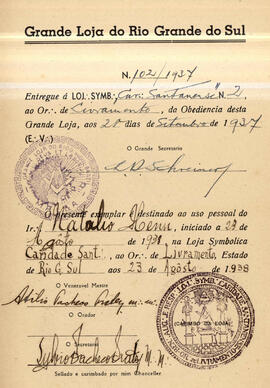 Grande Loja do Rio Grande do Sul
N. 102/1937
Entregue á LOJ. SYMB. "Car. Santanense" N. 2
ao Or. de Livramento, da Obediencia desta
Grande Loja, aos 20 de Setembro de 1937
(E. V.)
O Grande Secretario
O presente exemplar é destinado ao uso pessoal do
Ir. Natalio iniciado a 23
Agosto 1938 na Loja Symbolica
Caridade Sant. ao Or. de Livramento, Estado de
Rio G. Sul aos 23 de Agosto 1938
O Veneravel Mestre
O Orador
O Secretario
Sylvio Pacheco
Sellado e carimbado por mim Chanceller
(CARIMBO DA LOJA)